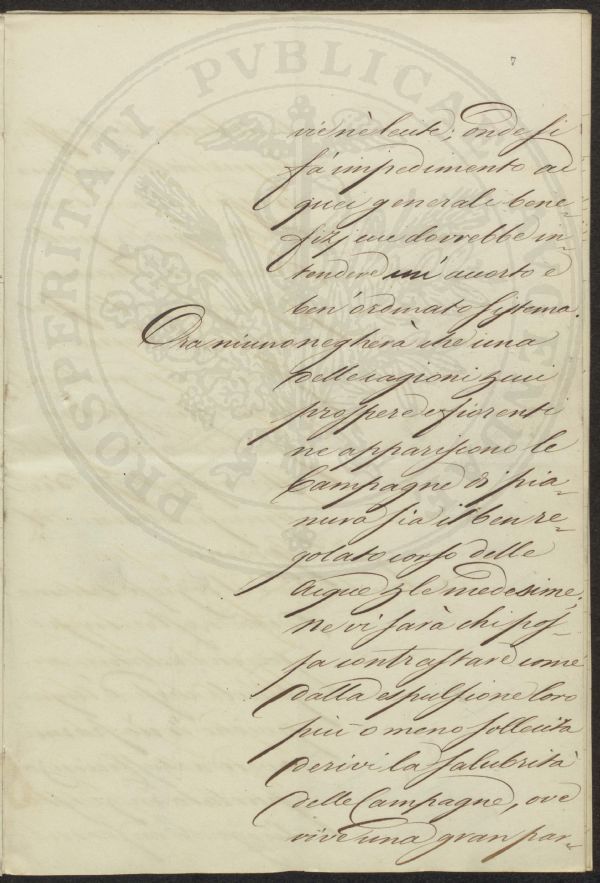 7
vienè lente; onde si
fà impedimento ai
quei generali bene-
fizj cui dovrebbe in-
tendere un' acuorto e
ben' ordinato sistema.
Ora niuno negherà che una
delle cagioni p cui
prospere e fiorenti
ne appariscono le
Campagne di pia-
nura sia il ben re-
golato corso delle
acque p le medesime;
ne vi sarà chi pos-
sa contrastare come
dalla espulsione loro
più o meno sollecita
derivi la salubrità
delle Campagne, ove
vive una gran par-
PROSPERITATI PVBLICAE